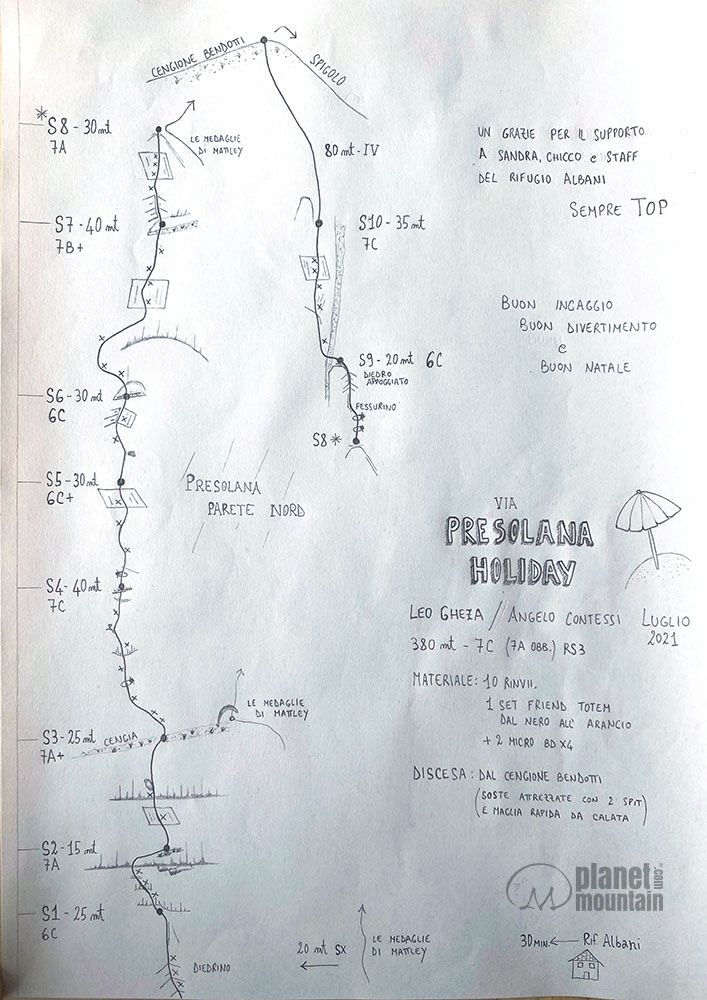 CENGIONE BENDOTTI
SPIGOLO
*
S8 - 30 mt
7A
LE MEDAGLIE
DI MATTLEY
80 mt - IV
S7 - 40 mt
7B+
S10 - 35 mt
7C
S9 - 20 mt 6C
DIEDRO
APPOGGIATO
FESSURINO
S8 *
S6 - 30 mt
6C
S5 - 30 mt
6C+
PRESOLANA
PARETE NORD
S4 - 40 mt
7C
LE MEDAGLIE
DI MATTLEY
S3 - 25 mt
7A+
CENGIA
S2 - 15 mt
7A
S1 - 25 mt
6C
DIEDRINO
20 mt SX
LE MEDAGLIE
DI MATTLEY
UN GRAZIE PER IL SUPPORTO
A SANDRA, CHICCO e STAFF
DEL RIFUGIO ALBANI
SEMPRE TOP
BUON INGAGGIO
BUON DIVERTIMENTO
e
BUON NATALE
VIA
PRESOLANA
HOLIDAY
LEO GHEZA / ANGELO CONTESSI LUGLIO
2021
380 mt - 7C (7A OBB.) RS3
MATERIALE: 10 RINVII,
1 SET FRIEND TOTEM
DAL NERO ALL' ARANCIO
+ 2 MICRO BD X4
DISCESA: DAL CENGIONE BENDOTTI
(SOSTE ATTREZZATE CON 2 SPIT
E MAGLIA RAPIDA DA CALATA)
planet
mountain
.com
30 MIN. ← Rif. Albani